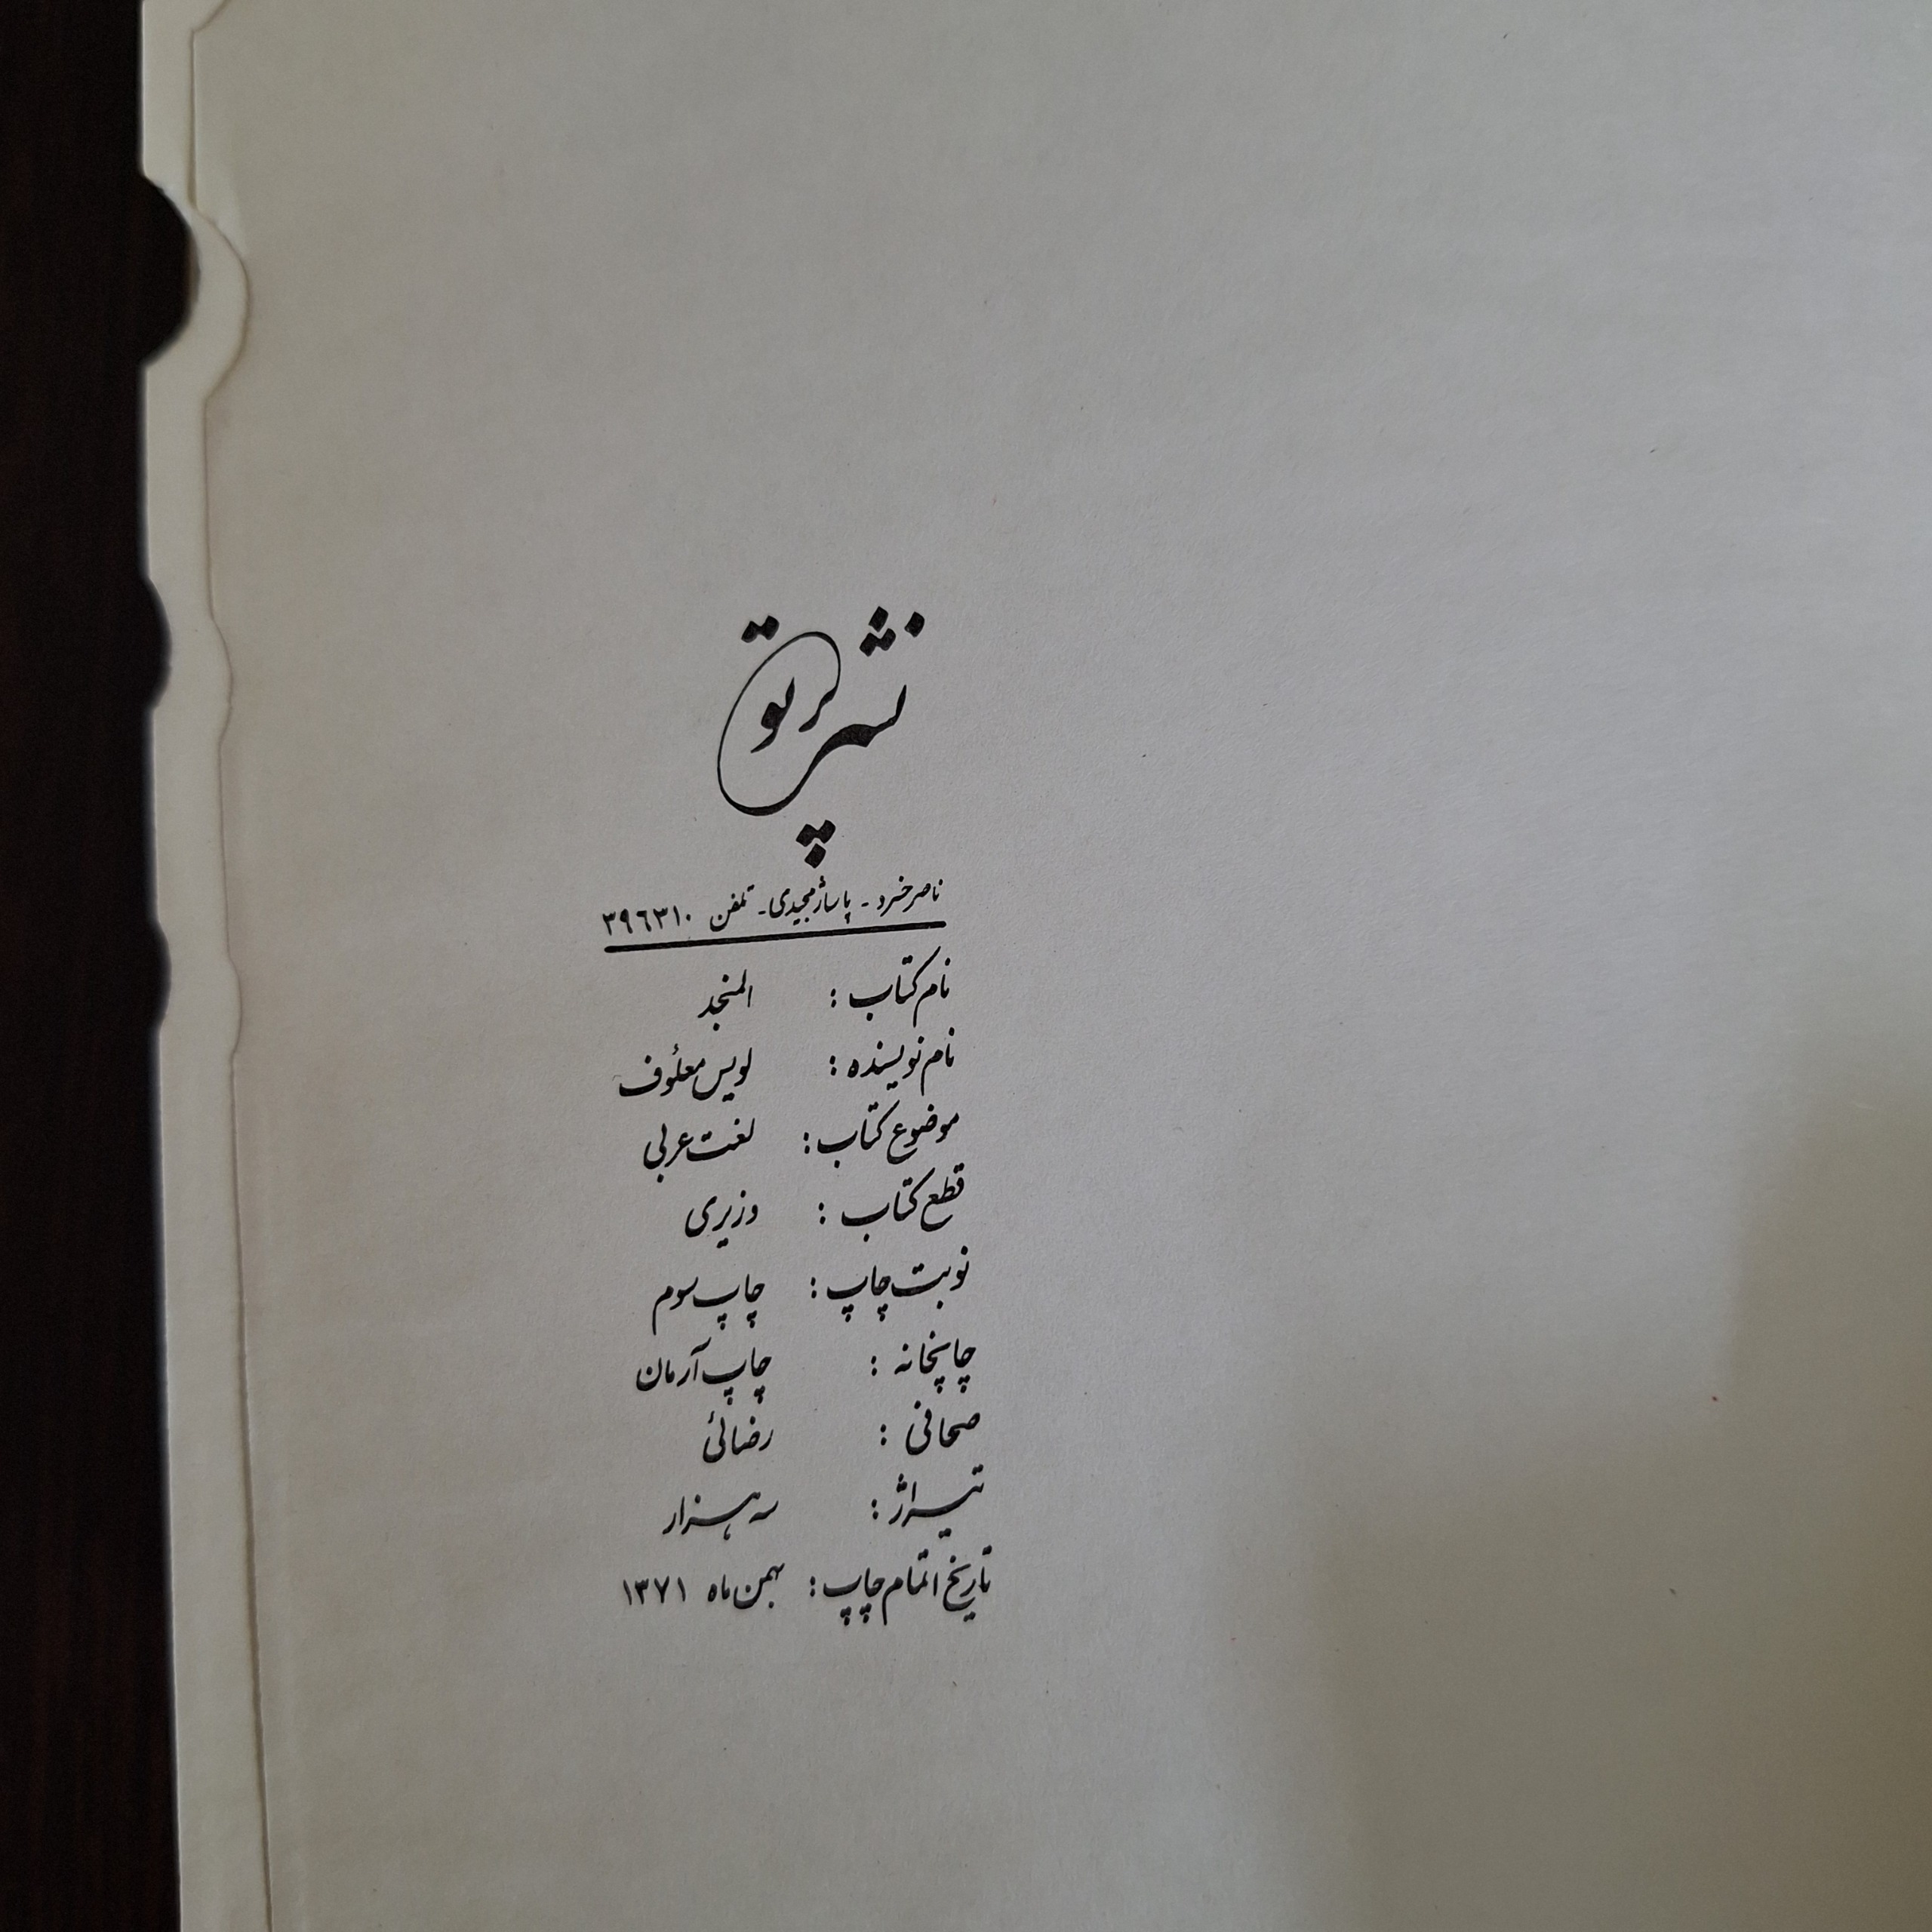 نشر پرتو
ناصرخسرو - پاساژ مجیدی - تلفن ۳۹٦۳۱۰
نام کتاب : المنجد
نام نویسنده : لویس معلوف
موضوع کتاب : لغت عربی
قطع کتاب : وزیری
نوبت چاپ : چاپ سوم
چاپخانه : چاپ آرمان
صحافی : رضائی
تیراژ : سه هزار
تاریخ اتمام چاپ : بهمن ماه ۱۳۷۱